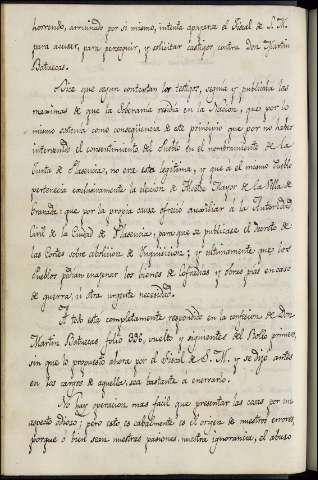 horrendo, arruinado por si mismo, intenta apoyarse el Fiscal de S. M.
para acusar, para perseguir, y solicitar castigos contra Don Martin
Batuecas.
Dice que segun contestan los testigos, seguia y publicaba las
maximas de que la Soberania residia en la Nacion, que por lo
mismo sostenia como consequencia de este principio que por no haber
intervenido el consentimiento del Pueblo en el nombramiento de la
Junta de Plasencia, no era esta legitima, y que á el mismo Pueblo
pertenecia exclusivamente la eleccion de Alcalde Mayor de la Villa de
Granada: que por la propia causa ofrecio auxiliar á la Autoridad
Civil de la Ciudad de Plasencia, para que se publicase el decreto de
las Cortes sobre abolicion de Inquisicion; y ultimamente que los
Pueblos podian enagenar los bienes de Cofradias y obras pias en caso
de guerra, ú otra urgente necesidad.
A todo está completamente respondido en la confesion de Don
Martin Batuecas folio 336, vuelto y siguientes del Rollo primero,
sin que lo propuesto ahora por el Fiscal de S. M. y se dijo antes
en los cargos de aquella sea bastante á enervarlo.
No hay operacion mas facil que presentar las cosas por un
aspecto odioso; pero esto es cabalmente es el origen de nuestros errores,
porque ó bien sean nuestras pasiones, nuestra ignorancia, el abuso